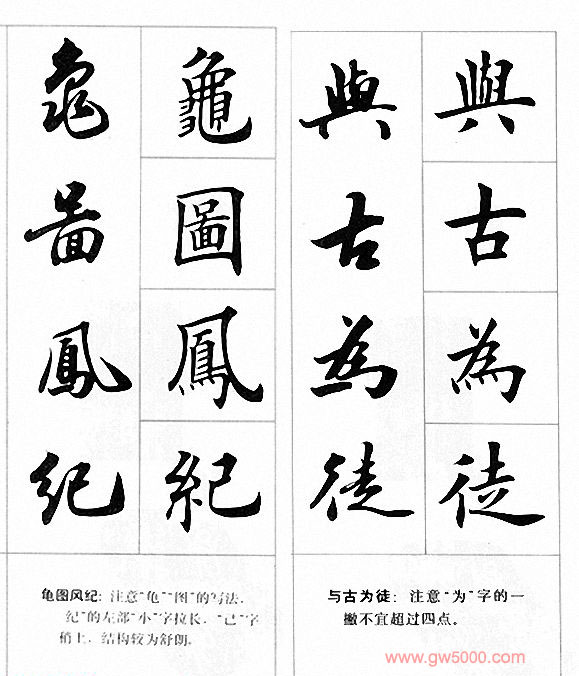 龜啚鳳紀
龜圖鳳紀
龟图风纪：注意“龟”“图”的写法，
纪”的左部“小”字拉长，“己”字
稍上，结构较为舒朗。
與古為徒
與古為徒
与古为徒：注意“为”字的一
撇不宜超过四点。
www.gw5000.com